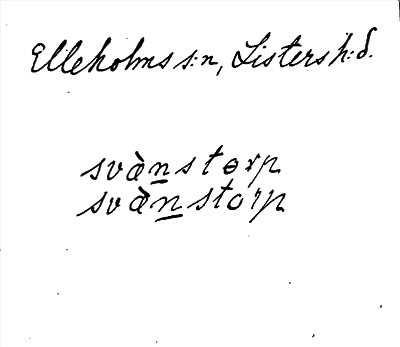 Elleholms s:n, Listers h:d.
svàn̲storp
svàn̲storp